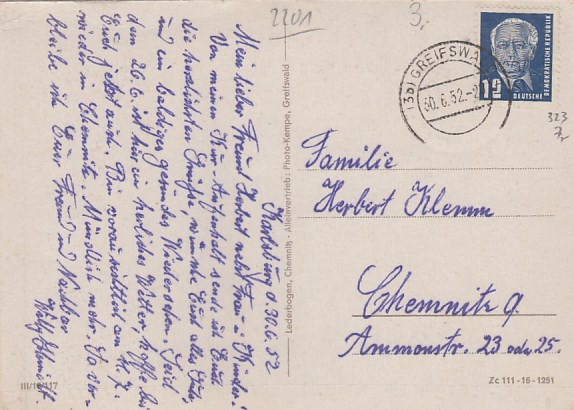 2201
3,-
(3b) GREIFSWALD
30.6.52.-
12
DEUTSCHE
DEMOKRATISCHE REPUBLIK
323
7,-
Karlsburg d. 30.6.52
Mein lieber Freund Herbert nebst Frau u. Kinder!
Von meinen Kur-Aufenthalt sende ich Euch
die herzlichsten Grüße, wünsche Euch alles Gute
und ein baldiges gesundes Wiedersehen. Seid
dem 26.6. ist hier ein herrliches Wetter, hoffe bei
Euch jetzt auch. Bin voraussichtlich am 11.7.
wieder in Chemnitz. Mündlich mehr. So ver-
bleibe ich Euer Freund und Nachbar
Willy Schmidt.
Lederbogen, Chemnitz - Alleinvertrieb: Photo-Kempe, Greifswald
Familie
Herbert Klemm
Chemnitz 9.
Ammonstr. 23 oder 25.
III/18/117
Zc 111-16-1251